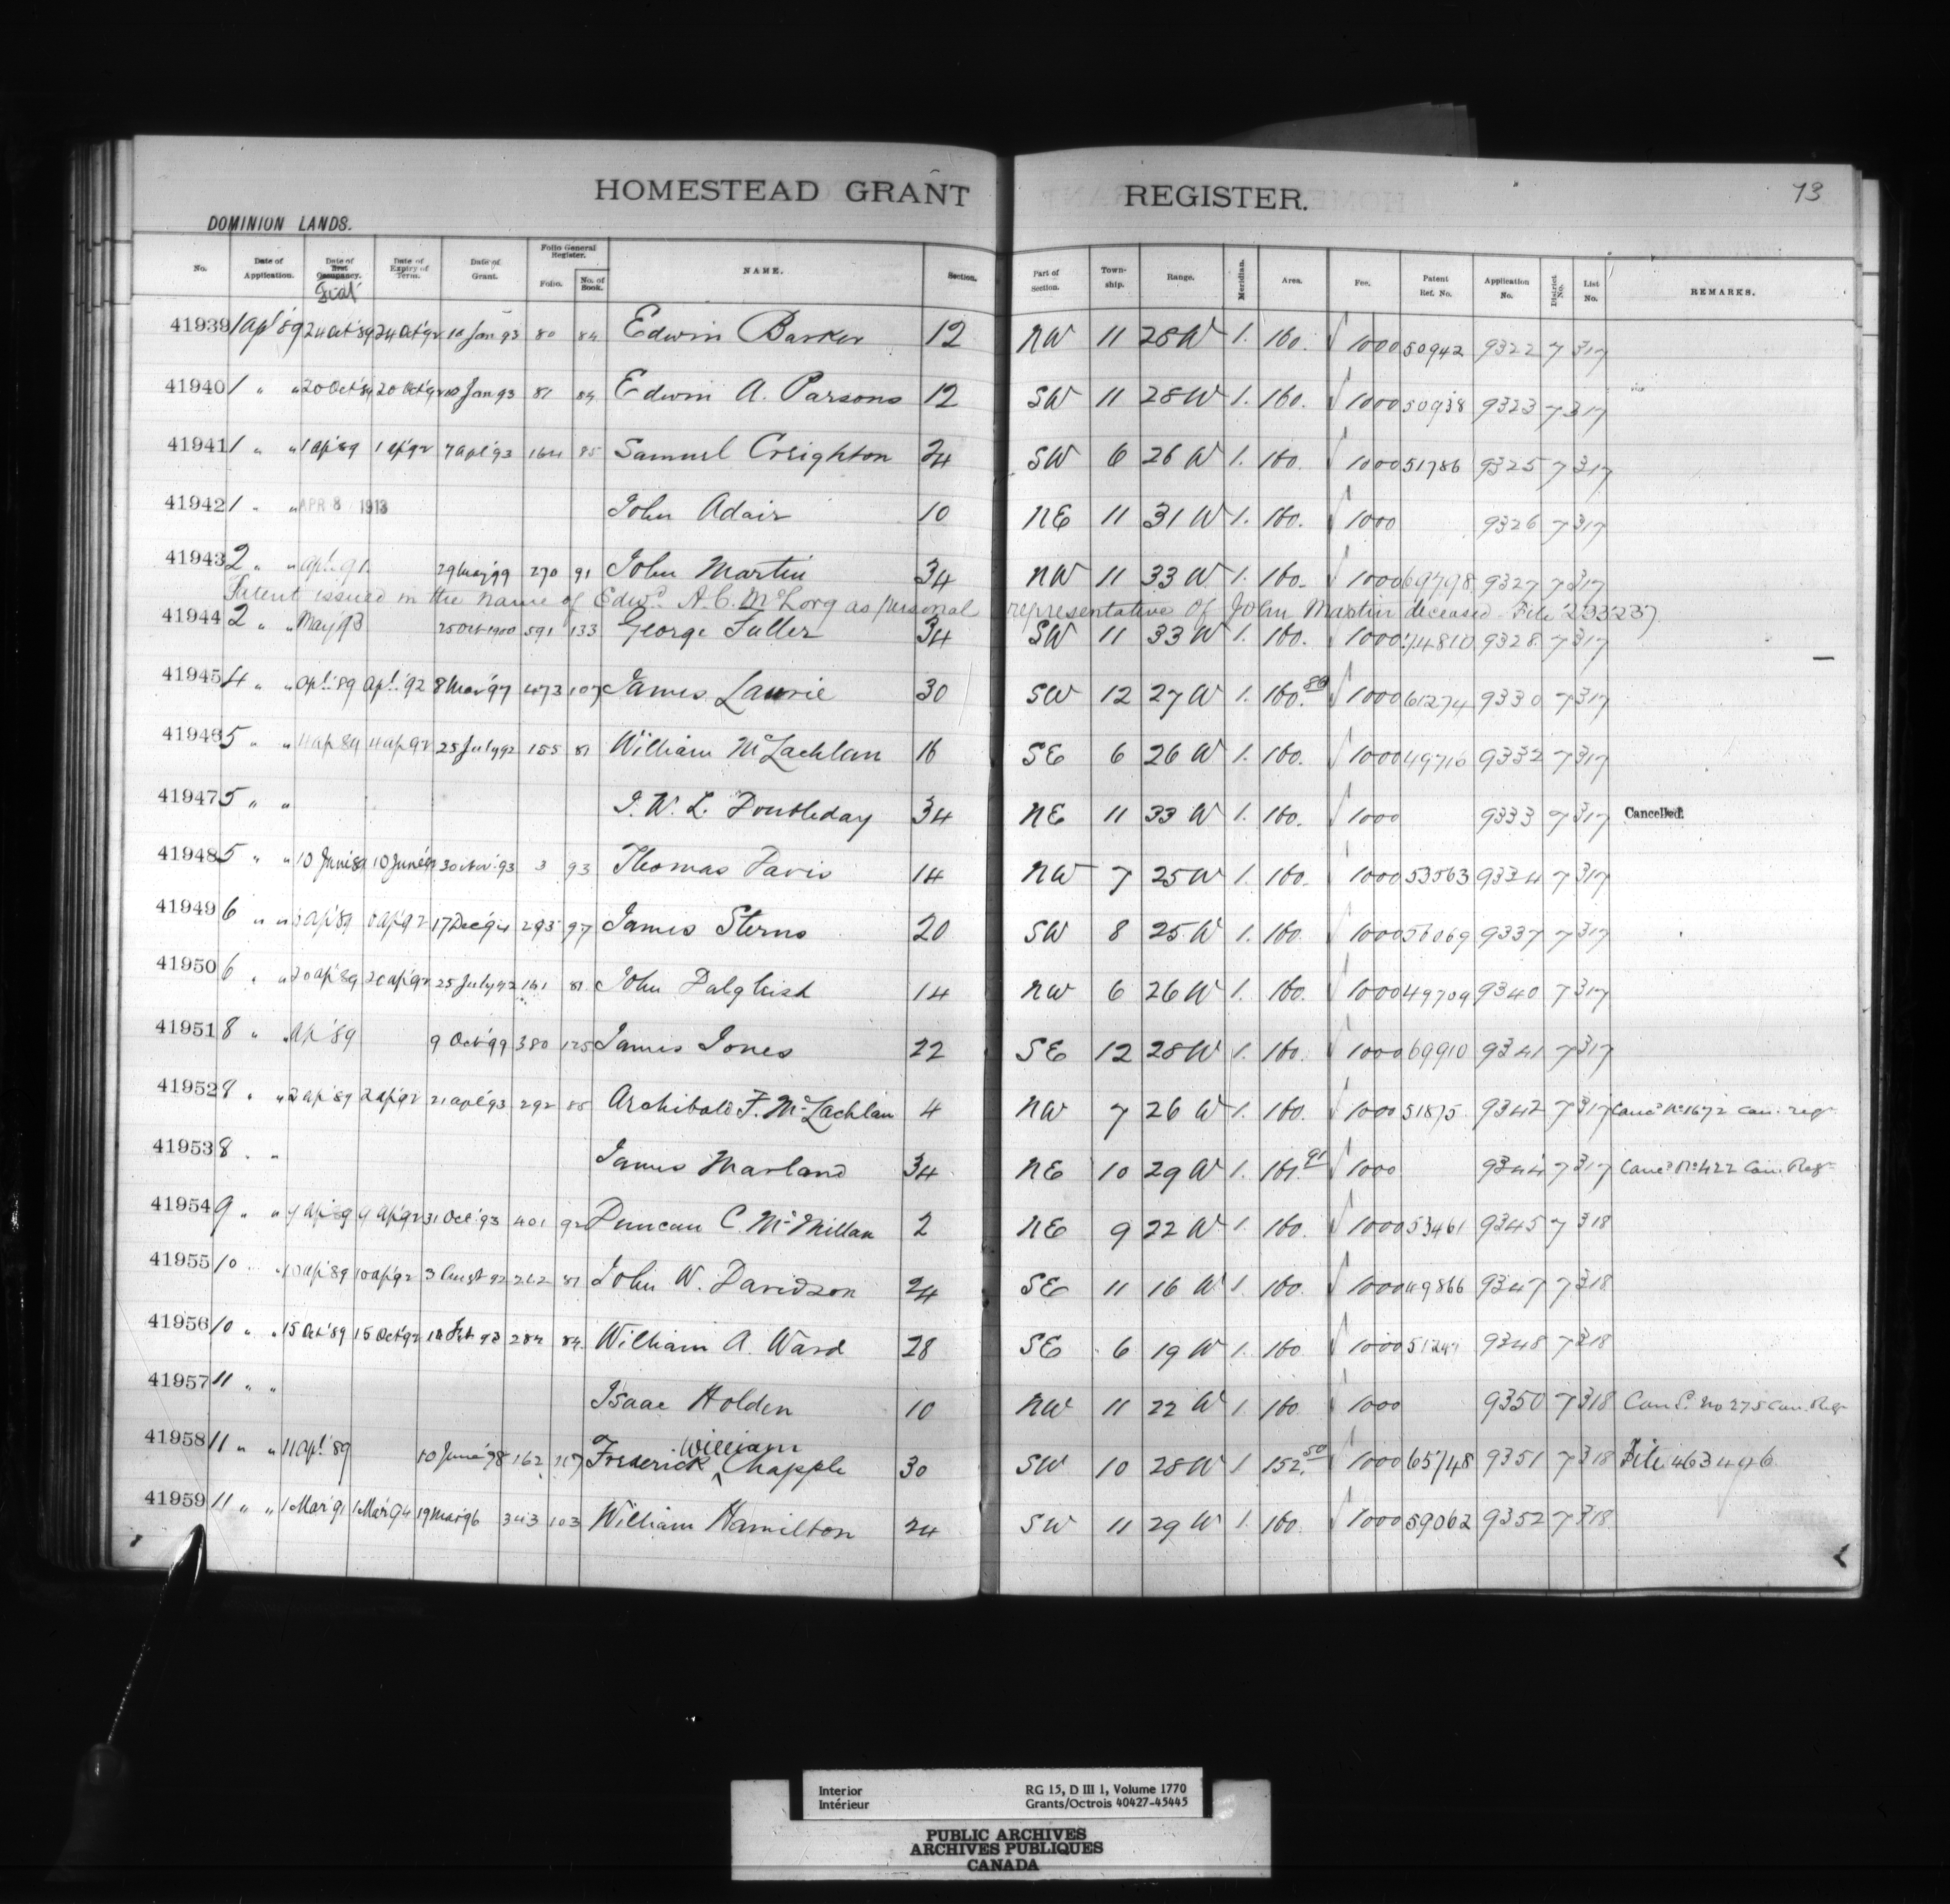 HOMESTEAD GRANT REGISTER. 73
DOMINION LANDS.
No. Date of Application. Date of Occupancy. Date of Expiry of Term. Date of Grant. Folio General Register. Folio. No. of Book. NAME. Section. Part of Section. Township. Range. Meridian. Area. Fee. Patent Ref. No. Application No. District No. List No. REMARKS.
41939 1 Ap' 89 24 Oct '89 24 Oct '92 10 Jan 93 80 84 Edwin Barker 12 NW 11 28 W 1. 160. 1000 50942 9322 7 317
41940 1 " " 20 Oct '89 20 Oct '92 10 Jan 93 81 84 Edwin A. Parsons 12 SW 11 28 W 1. 160. 1000 50938 9323 7 317
41941 1 " " 1 Ap' 89 1 Ap' 92 7 Apl '93 164 85 Samuel Creighton 24 SW 6 26 W 1. 160. 1000 51786 9325 7 317
41942 1 " " APR 8 1913 John Adair 10 NE 11 31 W 1. 160. 1000 9326 7 317
41943 2 " " Apl. 91. 29 May '99 270 91 John Martin 34 NW 11 33 W 1. 160. 1000 69798 9327 7 317
Patent issued in the name of Edwd. A. C. McLorg as personal representative of John Martin deceased - File 233237.
41944 2 " " May '93 25 Oct 1900 591 133 George Fuller 34 SW 11 33 W 1. 160. 1000 74810 9328 7 317
41945 4 " " Apl. '89 Apl. '92 8 Mar '97 473 107 James Laurie 30 SW 12 27 W 1. 160. 1000 61274 9330 7 317
41946 5 " " 4 Ap 89 4 Ap 92 25 July 92 155 81 William McLachlan 16 SE 6 26 W 1. 160. 1000 49716 9332 7 317
41947 5 " " J. W. L. Doubleday 34 NE 11 33 W 1. 160. 1000 9333 7 317 Cancelled.
41948 5 " " 10 June 89 10 June 92 30 Nov. 93 3 93 Thomas Davis 14 NW 7 25 W 1. 160. 1000 53563 9334 7 317
41949 6 " " Ap' 89 Ap' 92 17 Dec '94 293 97 James Sterns 20 SW 8 25 W 1. 160 1000 56069 9337 7 317
41950 6 " " 20 Ap' 89 20 Ap' 92 25 July 92 161 81 John Dalgleish 14 NW 6 26 W 1. 160. 1000 49709 9340 7 317
41951 8 " " Ap' 89 9 Oct '99 380 125 James Jones 22 SE 12 28 W 1. 160. 1000 69910 9341 7 317
41952 8 " " 2 Ap' 89 2 Ap' 92 21 Apl '93 292 85 Archibald F. McLachlan 4 NW 7 26 W 1. 160. 1000 51875 9342 7 317 Cancd No 1672 Can. Regr
41953 8 " " James Marland 34 NE 10 29 W 1. 161.91 1000 9344 7 317 Cancd No 422 Can. Regr
41954 9 " " 9 Ap' 89 9 Ap' 92 31 Oct '93 401 92 Duncan C. McMillan 2 NE 9 22 W 1. 160. 1000 53461 9345 7 318
41955 10 " " 10 Ap' 89 10 Ap' 92 3 Augst 92 212 81 John W. Davidson 24 SE 11 16 W 1. 160. 1000 49866 9347 7 318
41956 10 " " 15 Oct '89 15 Oct '92 Feb 93 284 84 William A. Ward 28 SE 6 19 W 1. 160 1000 9348 7 318
41957 11 " " Isaac Holden 10 NW 11 22 W 1. 160 1000 9350 7 318 Cancd. No 275 Can. Regr
41958 11 " " 11 Apl. '89 10 June '98 162 117 Frederick William Chapple 30 SW 10 28 W 1 152.50 1000 65748 9351 7 318 File 463446
41959 11 " " 1 Mar '91 1 Mar '94 19 Mar 96 343 103 William Hamilton 24 SW 11 29 W 1. 160. 1000 59062 9352 7 318
Interior RG 15, D III 1, Volume 1770
Intérieur Grants/Octrois 40427-45445
PUBLIC ARCHIVES
ARCHIVES PUBLIQUES
CANADA